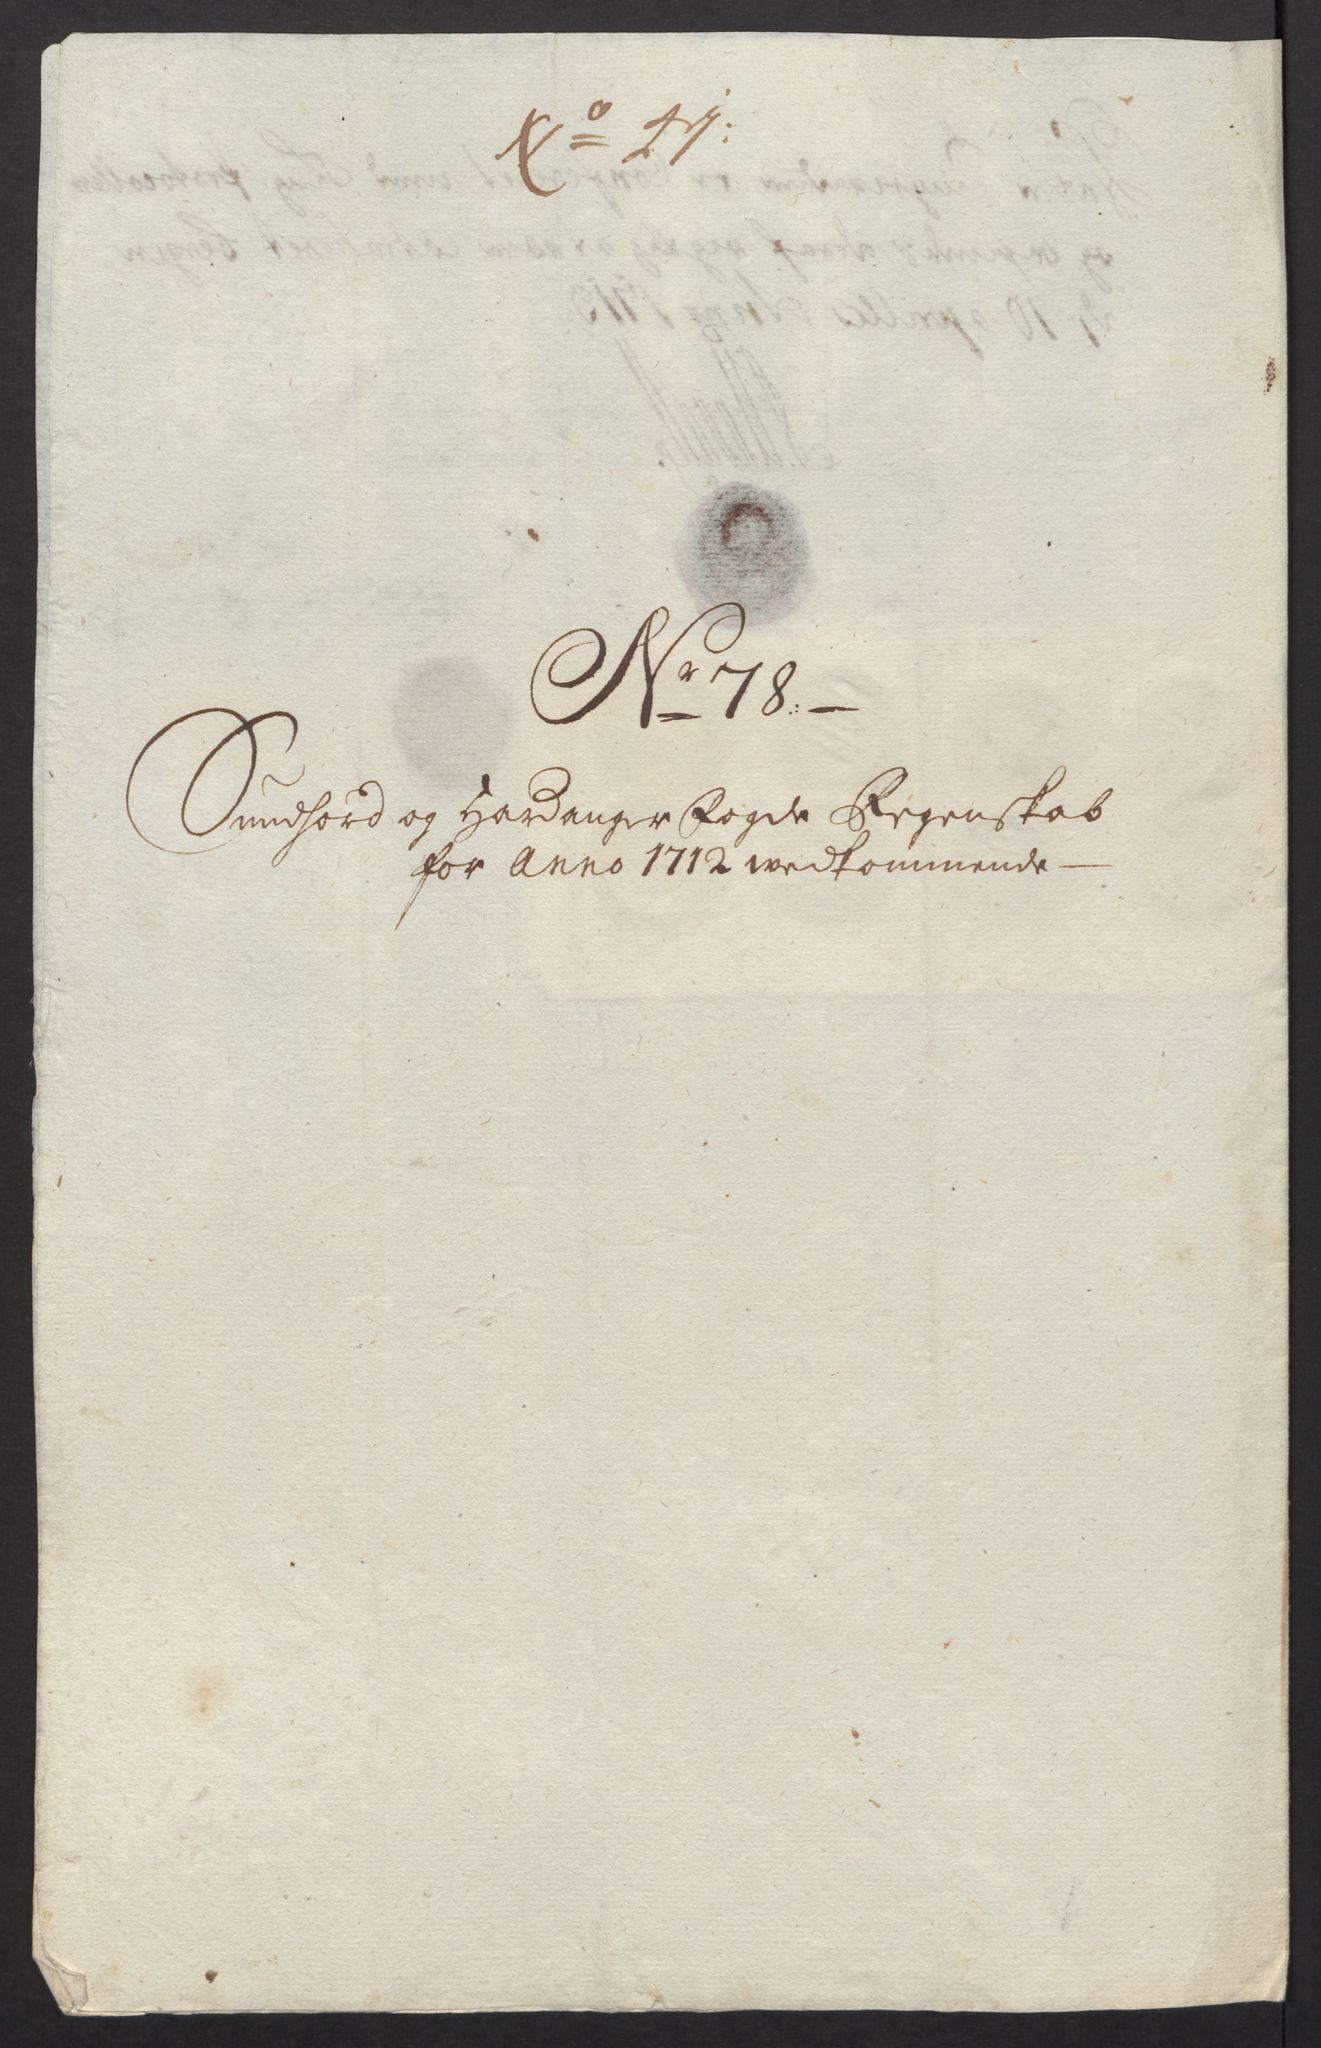 No 27:
Nr 78:
Sundhord og Hardanger Fogde Regenskab
for Anno 1712 wedkommende